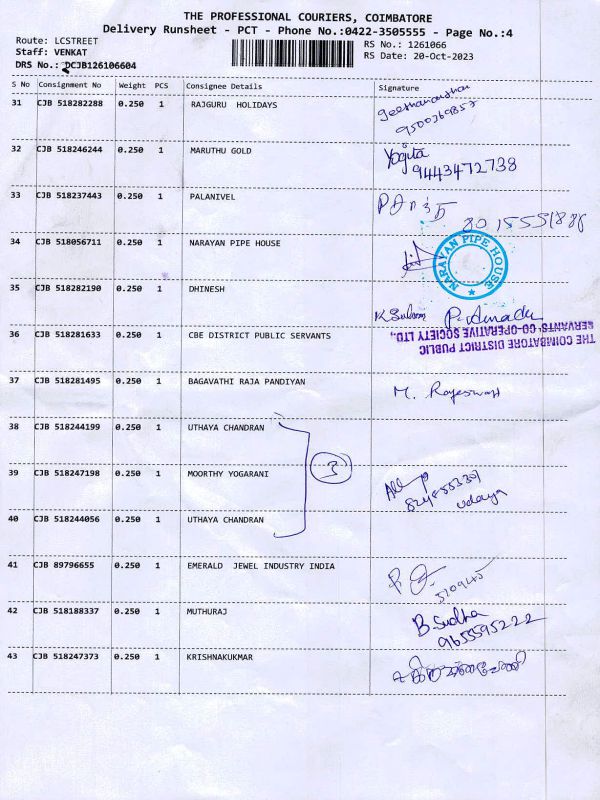 THE PROFESSIONAL COURIERS, COIMBATORE
Delivery Runsheet - PCT - Phone No.:0422-3505555 - Page No.:4
Route: LCSTREET
RS No.: 1261066
Staff: VENKAT
RS Date: 20-Oct-2023
DRS No.: DCJB126106604
S No Consignment No Weight PCS Consignee Details Signature
31 CJB 518282288 0.250 1 RAJGURU HOLIDAYS
9500369857
32 CJB 518246244 0.250 1 MARUTHU GOLD Yogita
9443472738
33 CJB 518237443 0.250 1 PALANIVEL
34 CJB 518056711 0.250 1 NARAYAN PIPE HOUSE
NARAYAN PIPE HOUSE
35 CJB 518282190 0.250 1 DHINESH
36 CJB 518281633 0.250 1 CBE DISTRICT PUBLIC SERVANTS
THE COIMBATORE DISTRICT PUBLIC
SERVANTS' CO-OPERATIVE SOCIETY LTD.,
37 CJB 518281495 0.250 1 BAGAVATHI RAJA PANDIYAN M. Rajeswari
38 CJB 518244199 0.250 1 UTHAYA CHANDRAN
3
39 CJB 518247198 0.250 1 MOORTHY YOGARANI
udaya
40 CJB 518244056 0.250 1 UTHAYA CHANDRAN
41 CJB 89796655 0.250 1 EMERALD JEWEL INDUSTRY INDIA
42 CJB 518188337 0.250 1 MUTHURAJ B. Sudha
9655595222
43 CJB 518247373 0.250 1 KRISHNAKUKMAR